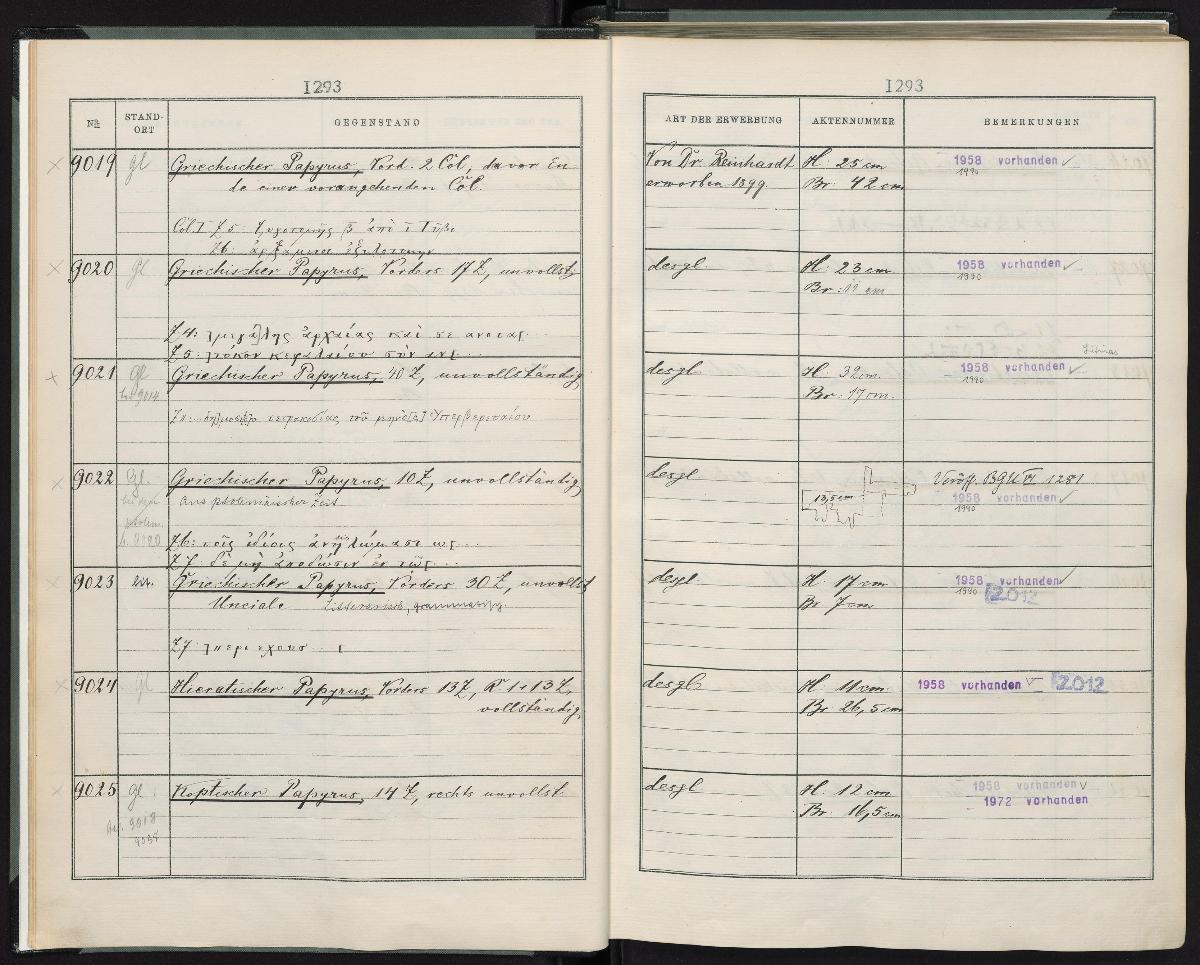 1293
Nr.
STAND-
ORT
GEGENSTAND
9019
gl
Griechischer Papyrus, Vord. 2 Col, davor En
de einer vorangehenden Col.
Col. I Z 5:
Z 6:
9020
gl
Griechischer Papyrus, Vorders 17 Z, unvollst.
Z 4: ]μεγάλης ἀρχαίας καὶ σε
Z 5: ]τόκον κεφαλαίου σὺν
9021
gl
9014
Griechischer Papyrus, 40 Z, unvollständig
τοῦ Ὑπερβερεταίου
9022
gl.
Griechischer Papyrus, 10 Z, unvollständig
Aus ptolemäischer Zeit
Z 6: τοῖς ἰδίοις ἀνηλώμασι
Z 7: δὲ μὴ ἀποδῶσιν ἐν
9023
lit.
Griechischer Papyrus, Vorders 30 Z, unvollst
Unciale Litterarisch, grammatisch.
Z 7:
9024
gl
Hieratischer Papyrus, Vorders 13 Z, R 1+13 Z,
vollständig
9025
gl
9018
Koptischer Papyrus, 14 Z, rechts unvollst.
1293
ART DER ERWERBUNG
AKTENNUMMER
BEMERKUNGEN
Von Dr. Reinhardt
erworben 1899.
H: 25 cm
Br: 42 cm
1958 vorhanden ✓
1990
desgl.
H: 23 cm
Br: 11 cm
1958 vorhanden ✓
1990
desgl.
H: 32 cm.
Br: 17 cm.
1958 vorhanden ✓
1990
desgl
13,5 cm
Veröff. BGU VI 1281
1958 vorhanden ✓
1990
desgl.
H: 17 cm
Br 7 cm
1958 vorhanden ✓
1990
2012
desgl.
H: 11 cm.
Br: 26,5 cm
1958 vorhanden ✓ 2012
desgl
H: 12 cm
Br: 16,5 cm
1958 vorhanden ✓
1972 vorhanden